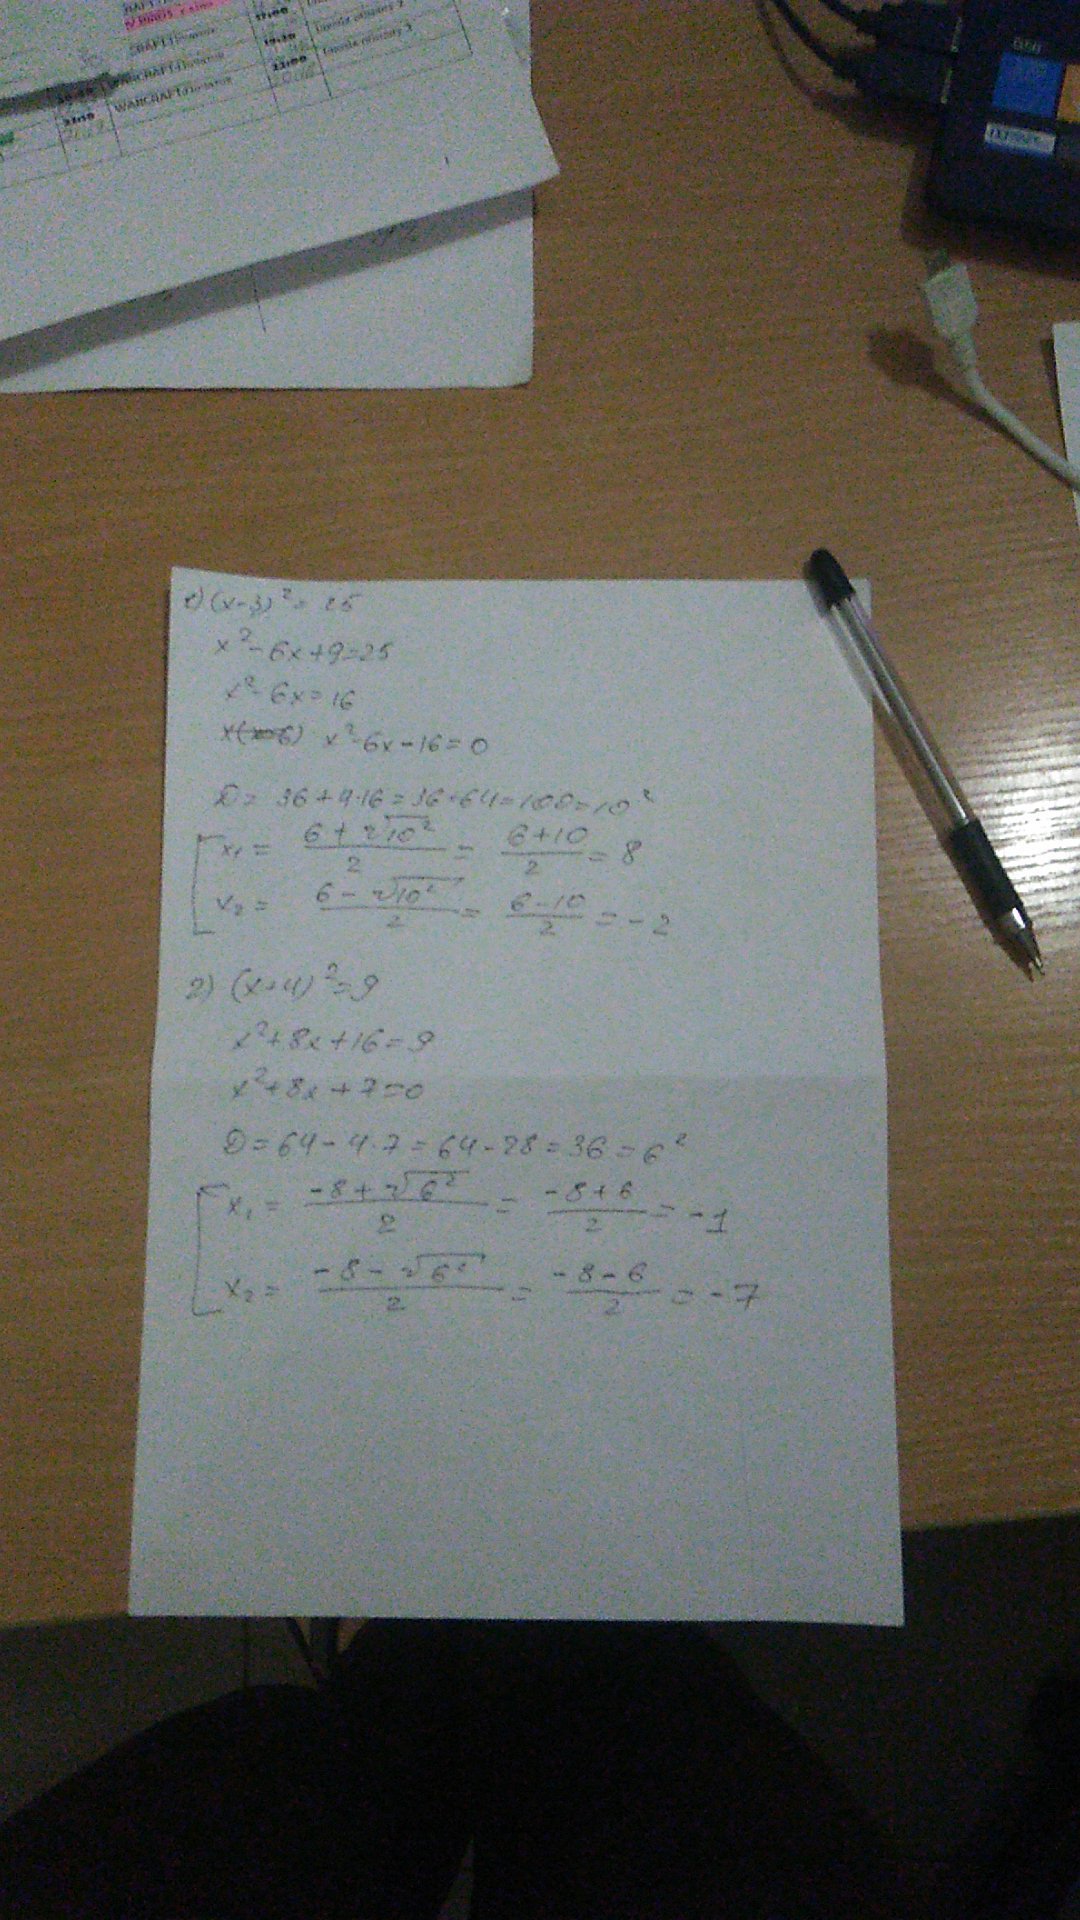 WARCRAFT
23:00
1) (x-3)² = 25
x² - 6x + 9 = 25
x² - 6x = 16
x(x-6) x² - 6x - 16 = 0
D = 36 + 4·16 = 36 + 64 = 100 = 10²
x₁ = (6 + √10²)/2 = (6 + 10)/2 = 8
x₂ = (6 - √10²)/2 = (6 - 10)/2 = -2
2) (x+4)² = 9
x² + 8x + 16 = 9
x² + 8x + 7 = 0
D = 64 - 4·7 = 64 - 28 = 36 = 6²
x₁ = (-8 + √6²)/2 = (-8 + 6)/2 = -1
x₂ = (-8 - √6²)/2 = (-8 - 6)/2 = -7